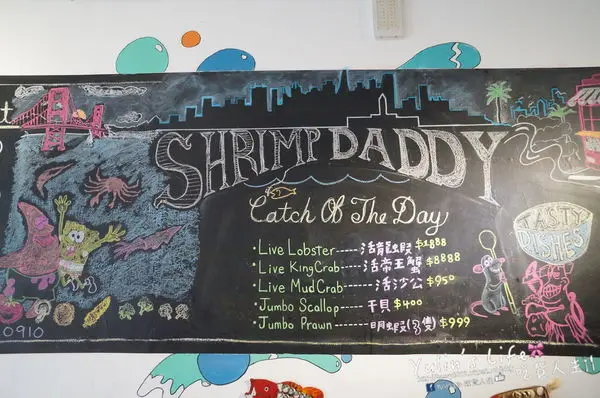 SHRIMP DADDY
Catch Of The Day
·Live Lobster-----活龍蝦 $1888
·Live KingCrab----活帝王蟹 $8888
·Live MudCrab-----活沙公 $950
·Jumbo Scallop----干貝 $400
·Jumbo Prawn-----明蝦(3隻) $999
TASTY
DISHES
0910
Yulin's Life